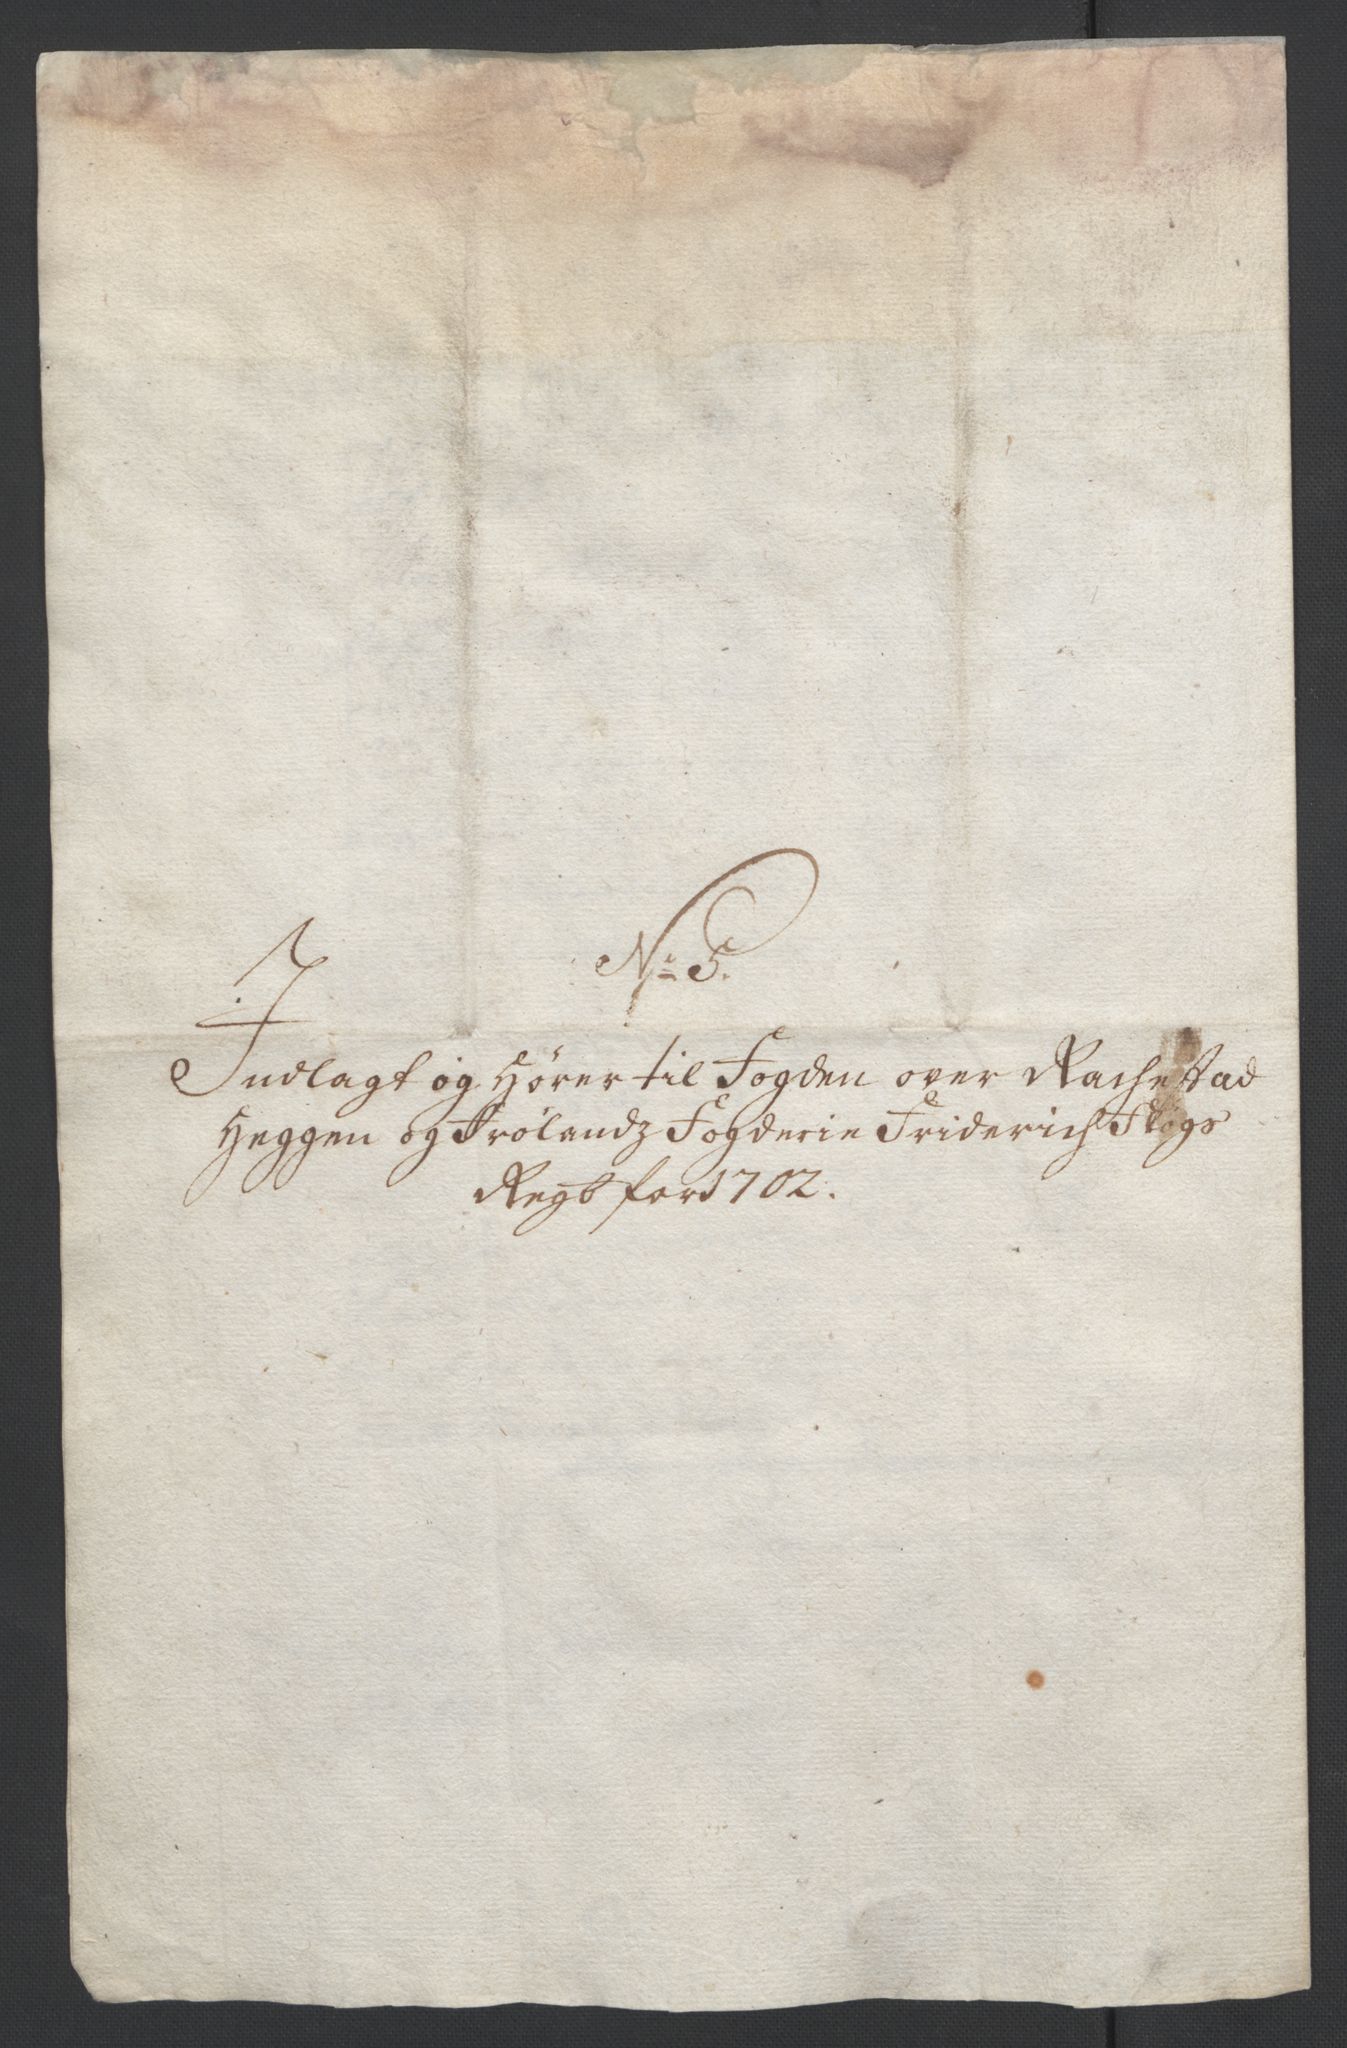 No 5.
Indlagt og Hører til Fogden over Rachestad
Heggen og Frølandz Fogderie Friderich Fløgs
Regb for 1702.